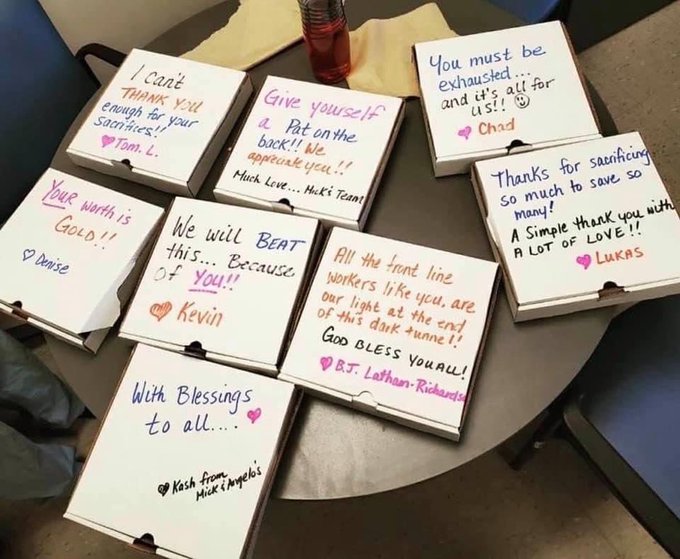 I can't
THANK YOU
enough for your
Sacrifices!!
Tom. L.
Give yourself
a Pat on the
back!! We
appreciate you!!
Much Love... Mick's Team
You must be
exhausted...
and it's all for
us!!
Chad
Thanks for sacrificing
so much to save so
many!
A Simple thank you with
A LOT OF LOVE!!
LUKAS
Your worth is
GOLD!!
Denise
We will BEAT
this... Because
of You!!
Kevin
All the front line
workers like you, are
our light at the end
of this dark tunnel!
GOD BLESS YOU ALL!
B.J. Latham-Richards
With Blessings
to all....
Kash from
Mick & Angelo's